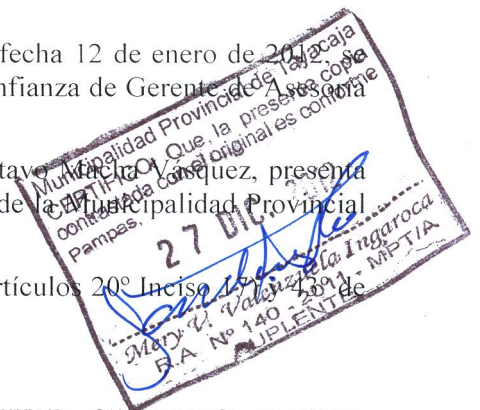 fecha 12 de enero de 2012, se
nfianza de Gerente de Asesoría
tavo Macha Vásquez, presenta
de la Municipalidad Provincial
rtículos 20° Inciso 17) y 43° de
Municipalidad Provincial de Tayacaja
CERTIFICO: Que, la presente copia
contrastada con el original es conforme
Pampas,
27 DIC.
Mery V. Valenzuela Ingaroca
R.A. N° 140 - 2011 - MPT/A
SUPLENTE